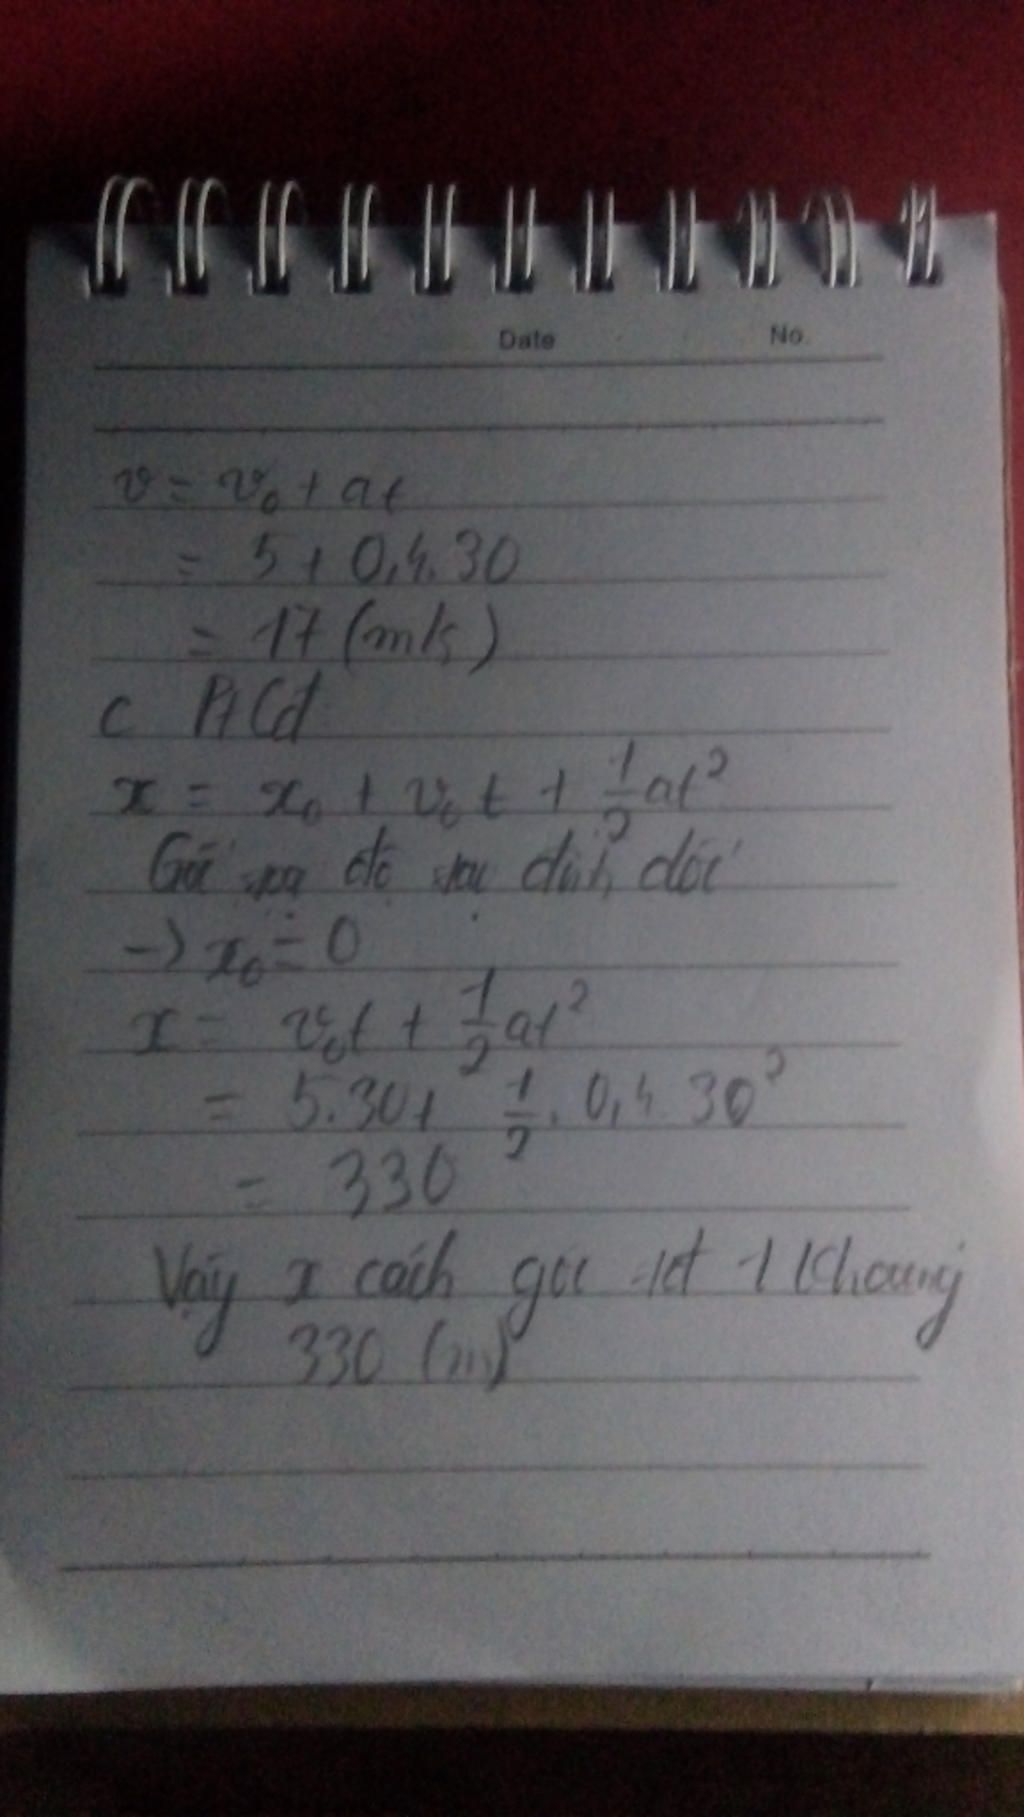 Date No.
v = v₀ + at
= 5 + 0,4.30
= 17 (m/s)
c PtCđ
x = x₀ + v₀t + 1/2 at²
Gốc đỉnh dốc
-> x₀ = 0
x = v₀t + 1/2 at²
= 5.30 + 1/2 . 0,4 30²
= 330
Vậy x cách gốc 1 Khoảng
330 (m)